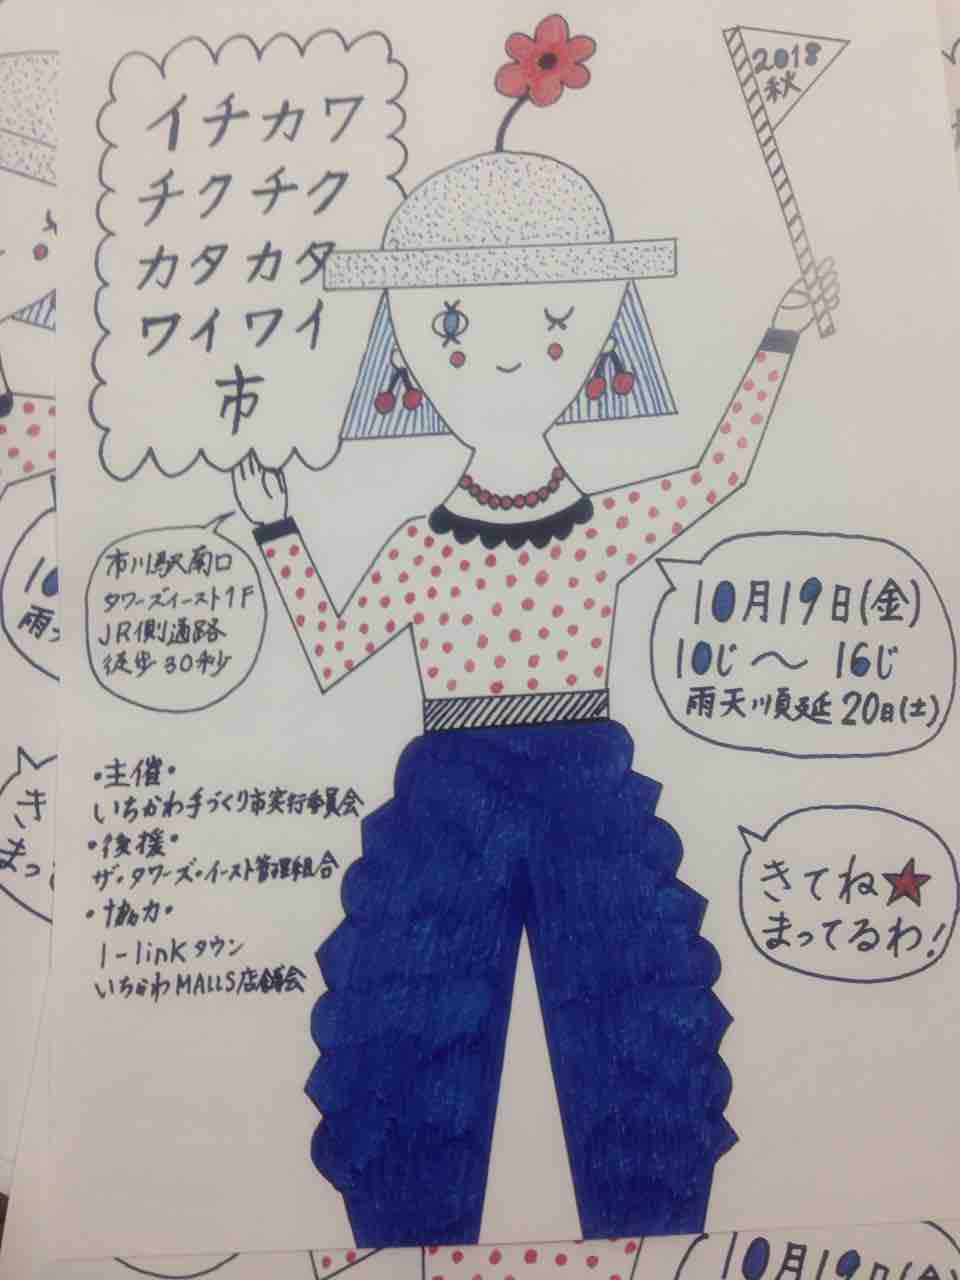 イチカワ
チクチク
カタカタ
ワイワイ
市
2018
秋
市川駅南口
タワーズイースト1F
JR側通路
徒歩30秒
10月19日(金)
10じ〜16じ
雨天順延20日(土)
・主催・
いちかわ手づくり市実行委員会
・後援・
ザ・タワーズ・イースト管理組合
・協力・
I-linkタウン
いちかわMALLS店舗会
きてね★
まってるわ!
10
雨
き
まっ
10月19日(金)